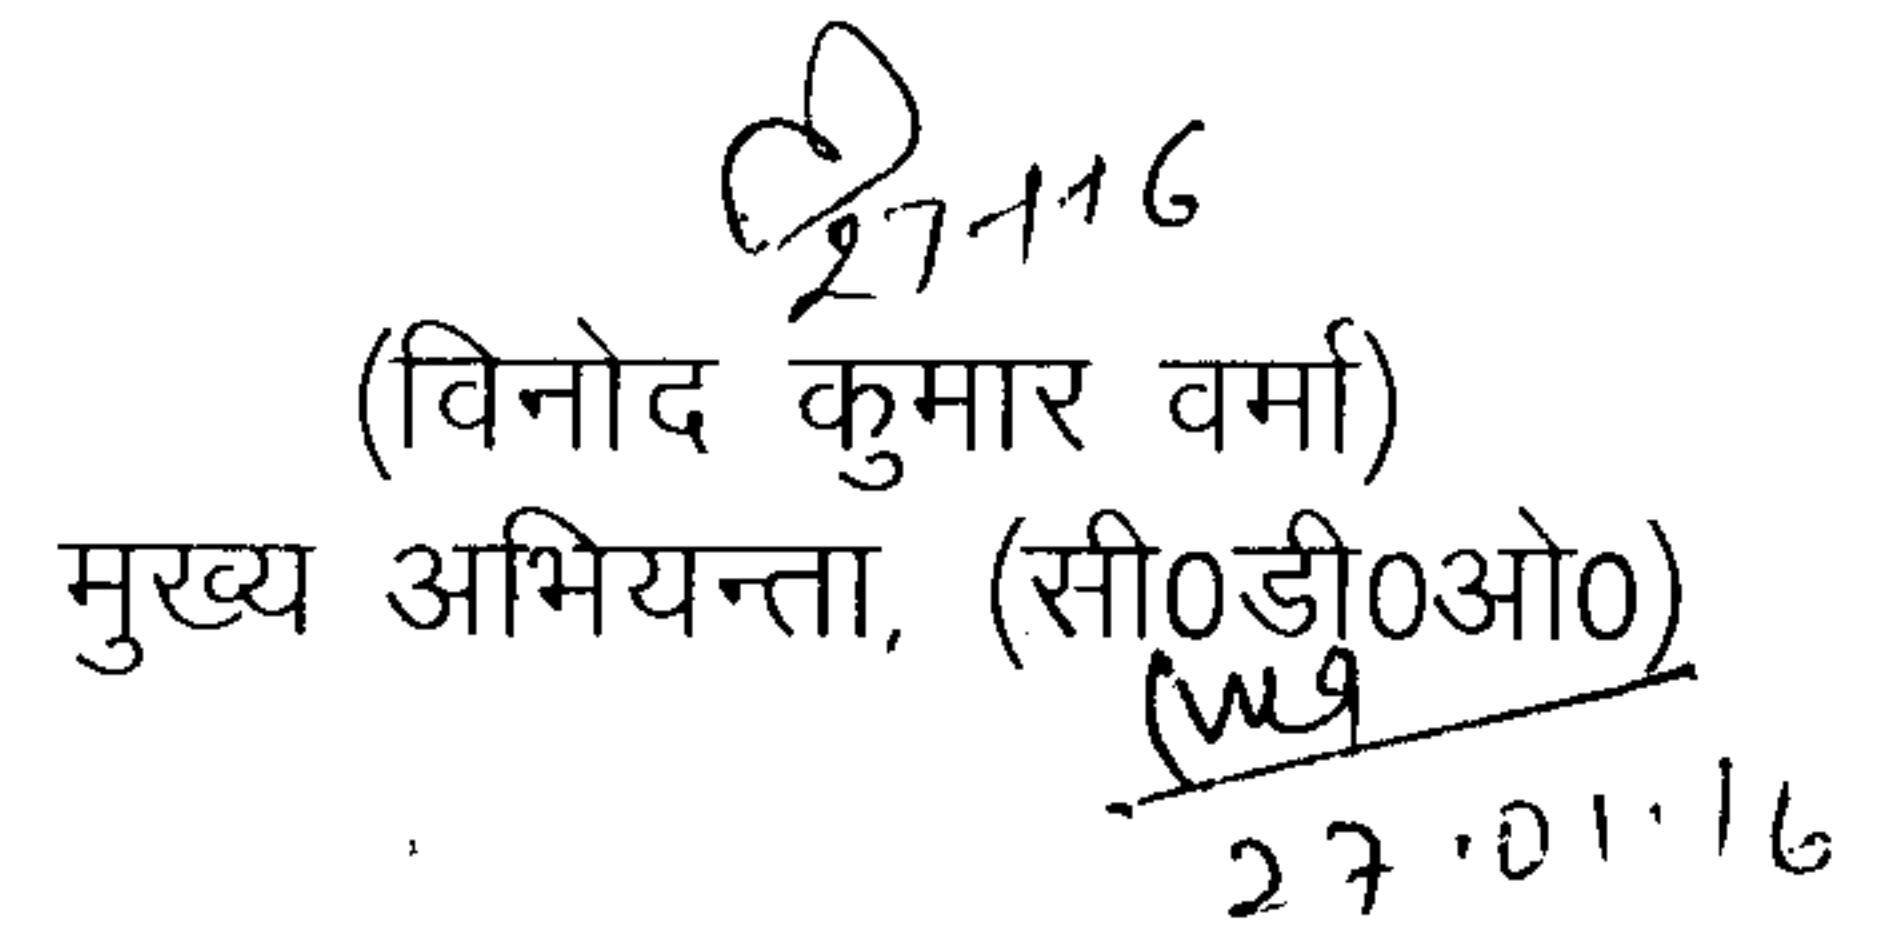 27-1-16
(विनोद कुमार वर्मा)
मुख्य अभियन्ता, (सी0डी0ओ0)
27.01.16